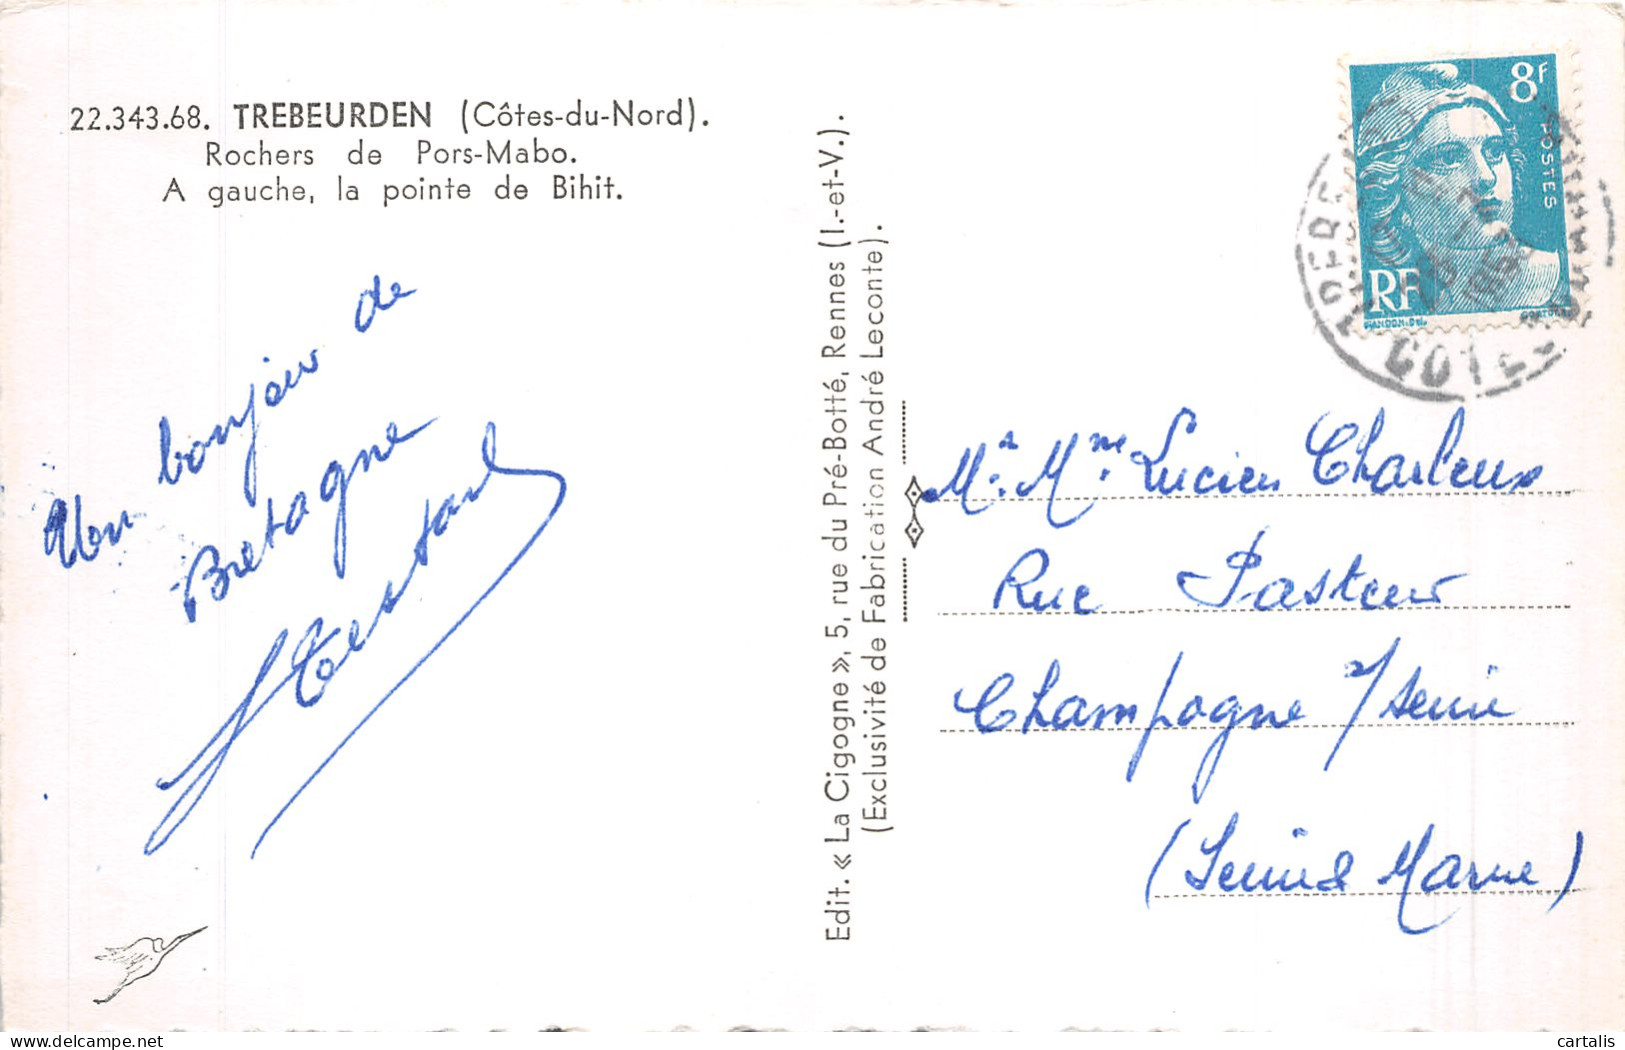 22.343.68. TREBEURDEN (Côtes-du-Nord).
Rochers de Pors-Mabo.
A gauche, la pointe de Bihit.
Un bonjour de
Bretagne
Edit. « La Cigogne », 5, rue du Pré-Botté, Rennes (I.-et-V.).
(Exclusivité de Fabrication André Leconte).
8F
POSTES
RF
GANDON.Del.
CORTOT
COTES
Mr. Mme. Lucien Charleux
Rue Pasteur
Champagne s/seine
(Seine & Marne)
cartalis